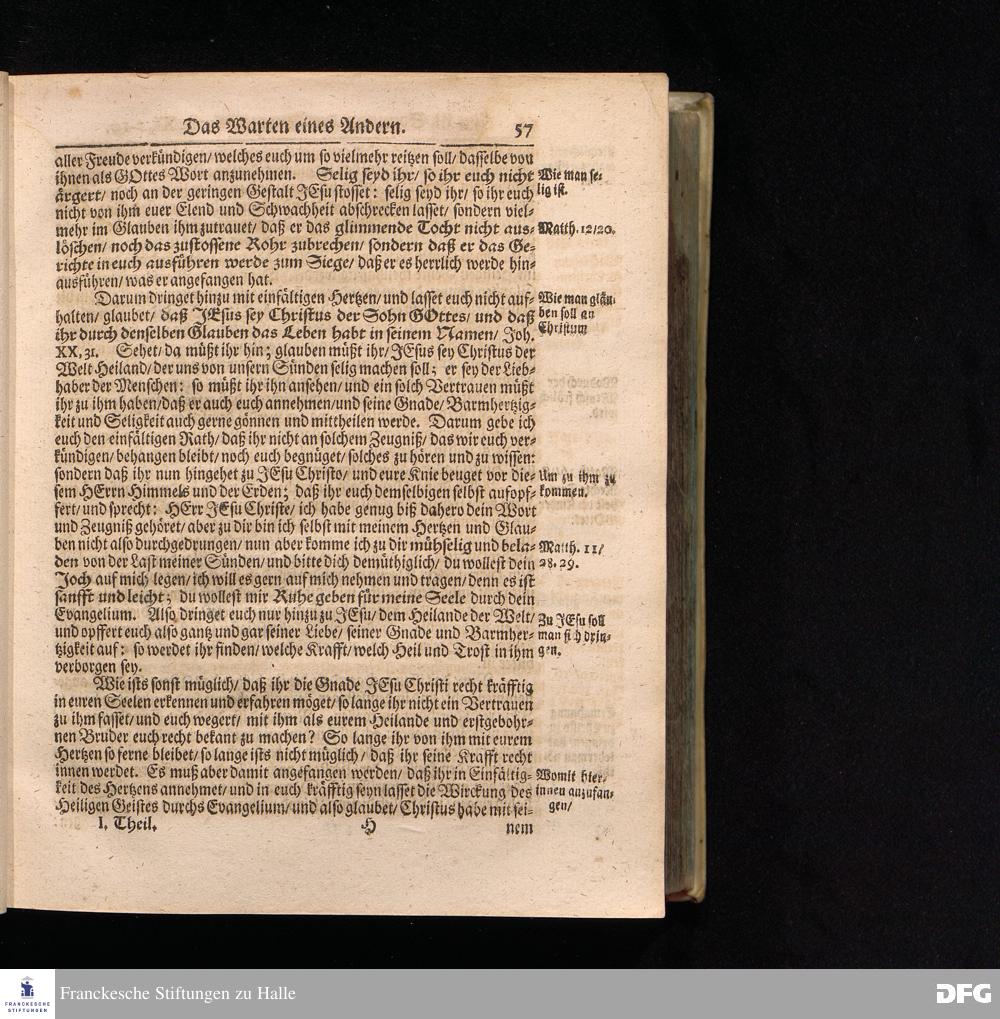 Das Warten eines Andern. 57
aller Freude verkündigen/ welches euch um so vielmehr reitzen soll/ dasselbe von
ihnen als GOttes Wort anzunehmen. Selig seyd ihr/ so ihr euch nicht
Wie man se-
ärgert/ noch an der geringen Gestalt JEsu stosset: selig seyd ihr/ so ihr euch
lig ist.
nicht von ihm euer Elend und Schwachheit abschrecken lasset/ sondern viel-
mehr im Glauben ihm zutrauet/ daß er das glimmende Tocht nicht aus-
Matth. 12/20.
löschen/ noch das zustossene Rohr zubrechen/ sondern daß er das Ge-
richte in euch ausführen werde zum Siege/ daß er es herrlich werde hin-
ausführen/ was er angefangen hat.
Darum dringet hinzu mit einfältigen Hertzen/ und lasset euch nicht auf-
Wie man gläu-
halten/ glaubet/ daß JEsus sey Christus der Sohn GOttes/ und daß
ben soll an
ihr durch denselben Glauben das Leben habt in seinem Namen/ Joh.
Christum
XX, 31. Sehet/ da müßt ihr hin; glauben müßt ihr/ JEsus sey Christus der
Welt Heiland/ der uns von unsern Sünden selig machen soll; er sey der Lieb-
haber der Menschen: so müßt ihr ihn ansehen/ und ein solch Vertrauen müßt
ihr zu ihm haben/ daß er auch euch annehmen/ und seine Gnade/ Barmhertzig-
keit und Seligkeit auch gerne gönnen und mittheilen werde. Darum gebe ich
euch den einfältigen Rath/ daß ihr nicht an solchem Zeugniß/ das wir euch ver-
kündigen/ behangen bleibt/ noch euch begnüget/ solches zu hören und zu wissen:
sondern daß ihr nun hingehet zu JEsu Christo/ und eure Knie beuget vor die-
Um zu ihm zu
sem HErrn Himmels und der Erden; daß ihr euch demselbigen selbst aufopf-
kommen.
fert/ und sprecht: HErr JEsu Christe/ ich habe genug biß dahero dein Wort
und Zeugniß gehöret/ aber zu dir bin ich selbst mit meinem Hertzen und Glau-
ben nicht also durchgedrungen/ nun aber komme ich zu dir mühselig und bela-
Matth. 11/
den von der Last meiner Sünden/ und bitte dich demüthiglich/ du wollest dein
28. 29.
Joch auf mich legen/ ich will es gern auf mich nehmen und tragen/ denn es ist
sanfft und leicht; du wollest mir Ruhe geben für meine Seele durch dein
Evangelium. Also dringet euch nur hinzu zu JEsu/ dem Heilande der Welt/
Zu JEsu soll
und opffert euch also gantz und gar seiner Liebe/ seiner Gnade und Barmher-
man sich drin-
tzigkeit auf: so werdet ihr finden/ welche Krafft/ welch Heil und Trost in ihm
gen.
verborgen sey.
Wie ists sonst müglich/ daß ihr die Gnade JEsu Christi recht kräfftig
in euren Seelen erkennen und erfahren möget/ so lange ihr nicht ein Vertrauen
zu ihm fasset/ und euch wegert/ mit ihm als eurem Heilande und erstgebohr-
nen Bruder euch recht bekant zu machen? So lange ihr von ihm mit eurem
Hertzen so ferne bleibet/ so lange ists nicht müglich/ daß ihr seine Krafft recht
innen werdet. Es muß aber damit angefangen werden/ daß ihr in Einfältig-
Womit hier-
keit des Hertzens annehmet/ und in euch kräfftig seyn lasset die Wirckung des
innen anzufan-
Heiligen Geistes durchs Evangelium/ und also glaubet/ Christus habe mit sei-
gen/
I. Theil. H nem
FRANCKESCHE
STIFTUNGEN
Franckesche Stiftungen zu Halle
DFG